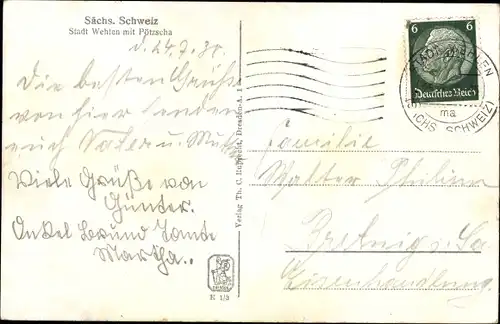 Sächs. Schweiz
Stadt Wehlen mit Pötzscha
d. 24.7.38.
Die besten Grüße
von hier senden
euch Vater u. Mutter
Viele Grüße von
Günter.
Onkel Bruno Tante
Martha..
Verlag Th. C. Ruprecht, Dresden-A. 1
K 1/3
6 6
Deutsches Reich
STADT WEHLEN
ma
(SÄCHS. SCHWEIZ)
Familie
Walter Philipp
Bretnig i. Sa
Eisenhandlung.